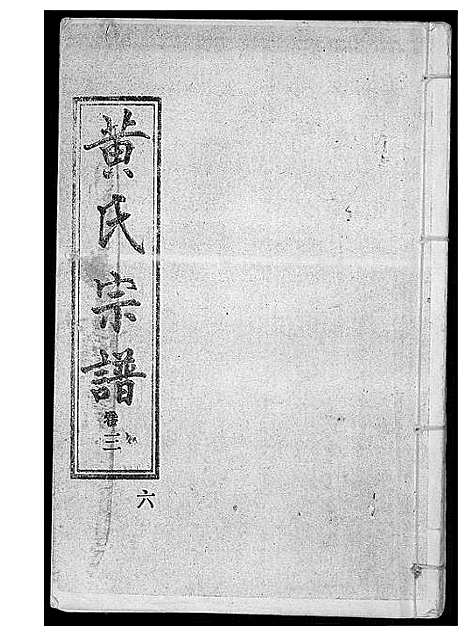 黃氏宗譜
卷三
六